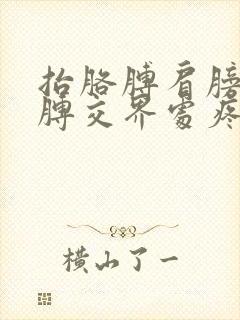 抬胳膊肩膀
膊交界处疼
横山了一